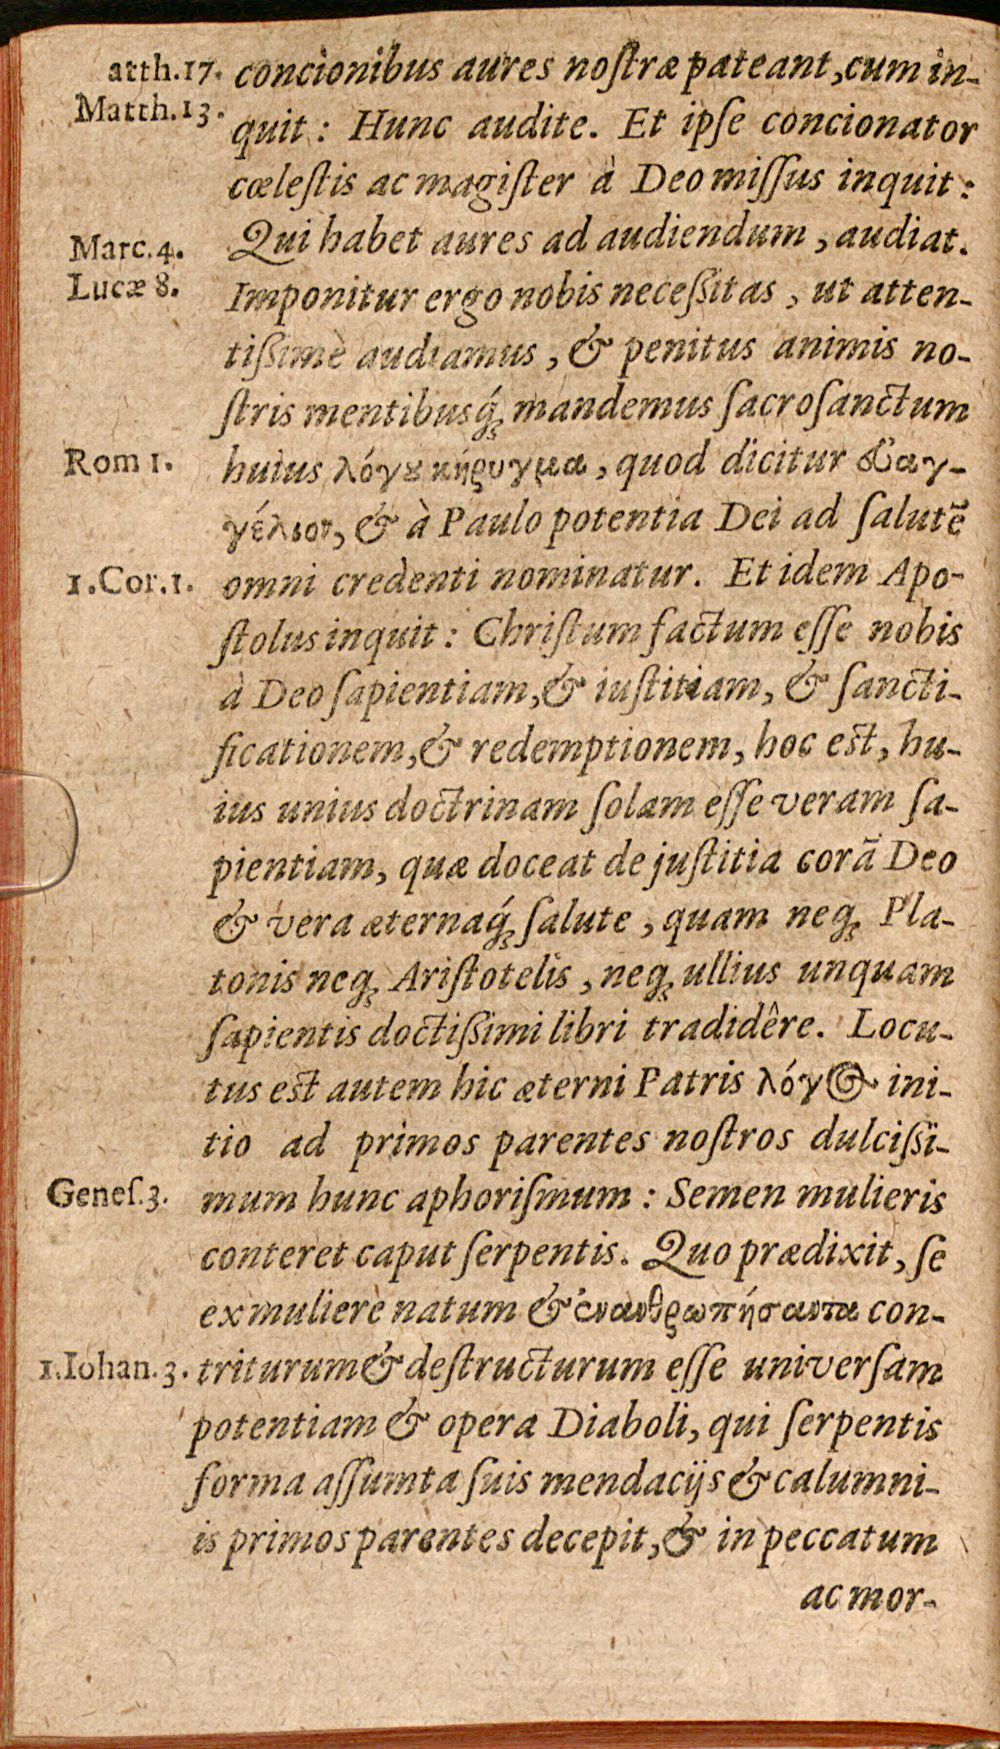 atth.17. concionibus aures noſtræ pateant, cum in-
Matth.13. quit: Hunc audite. Et ipſe concionator
cœleſtis ac magiſter à Deo miſſus inquit:
Marc.4. Qui habet aures ad audiendum, audiat.
Lucæ 8. Imponitur ergo nobis neceſſitas, ut atten-
tiſſimè audiamus, & penitus animis no-
ſtris mentibusq́; mandemus ſacroſanctum
Rom 1. huius λόγȣ κήρυγμα, quod dicitur ἐυαγ-
γέλιον, & à Paulo potentia Dei ad ſalutē
1.Cor.1. omni credenti nominatur. Et idem Apo-
ſtolus inquit: Chriſtum factum eſſe nobis
à Deo ſapientiam, & iuſtitiam, & ſancti-
ficationem, & redemptionem, hoc eſt, hu-
ius unius doctrinam ſolam eſſe veram ſa-
pientiam, quæ doceat de juſtitia corã Deo
& vera æternaq́; ſalute, quam neq; Pla-
tonis neq; Ariſtotelis, neq; ullius unquam
ſapientis doctiſſimi libri tradidêre. Locu-
tus eſt autem hic æterni Patris λόγος ini-
tio ad primos parentes noſtros dulciſſi-
Geneſ.3. mum hunc aphoriſmum: Semen mulieris
conteret caput ſerpentis. Quo prædixit, ſe
ex muliere natum & ἐνανθρωπήσαντα con-
1.Iohan.3. triturum & deſtructurum eſſe univerſam
potentiam & opera Diaboli, qui ſerpentis
forma aſſumta ſuis mendacijs & calumni-
is primos parentes decepit, & in peccatum
ac mor-